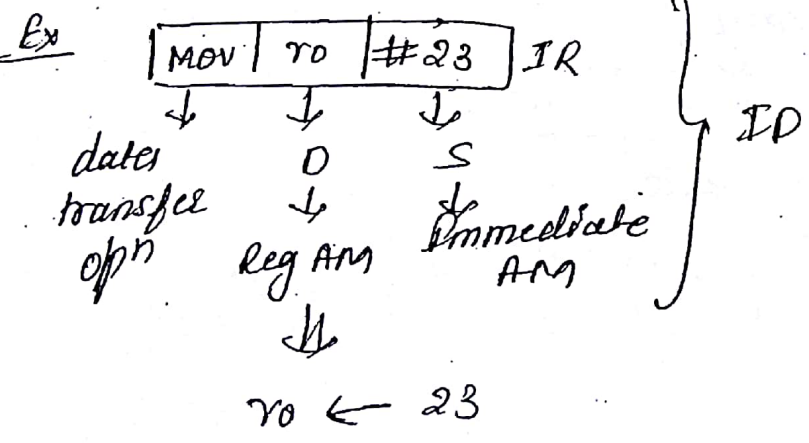 Ex
MOV r0 #23 IR
↓ ↓ ↓
data D S
transfer ↓ ↓
opn Reg AM Immediate
AM
ID
⇓
r0 ← 23